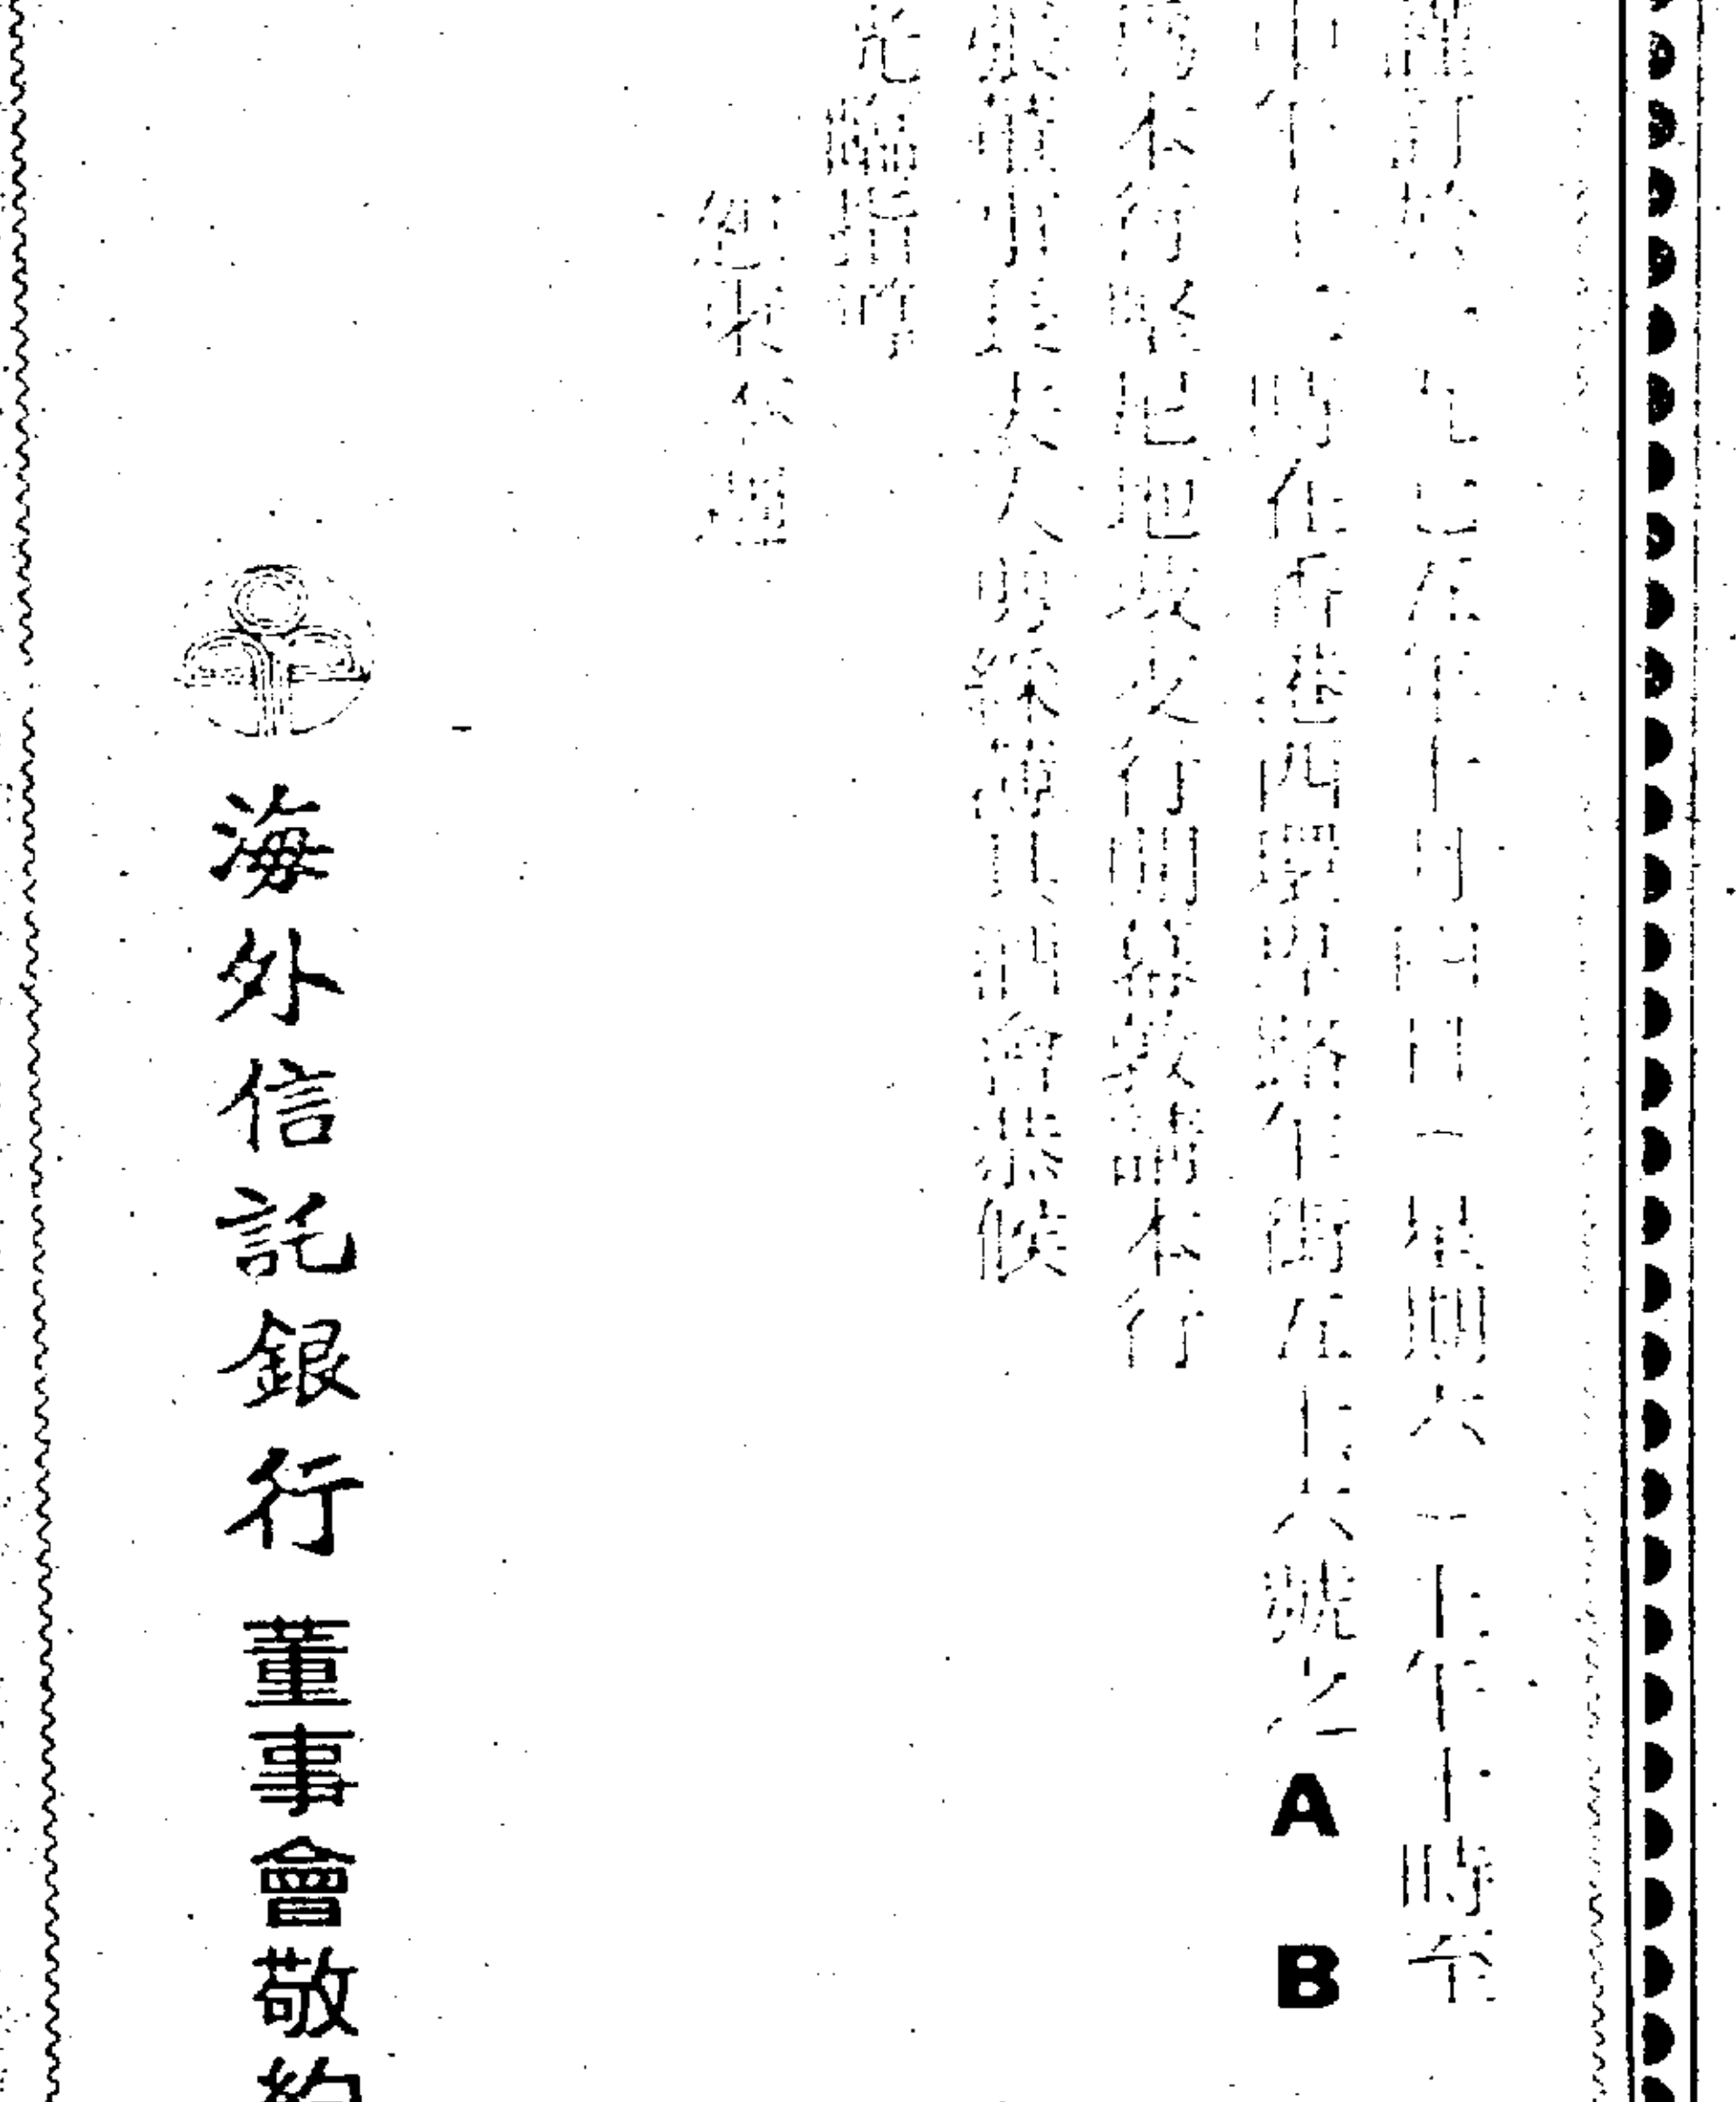 謹訂於一九七五年十月四日(星期六)上午十時至
中午十二時在香港西環卑路乍街五十六號之AB
為本行堅尼地城支行開幕敬請本行
張董事長夫人剪綵薄具酒會恭候
光臨指導
恕柬不週
海外信託銀行董事會敬約